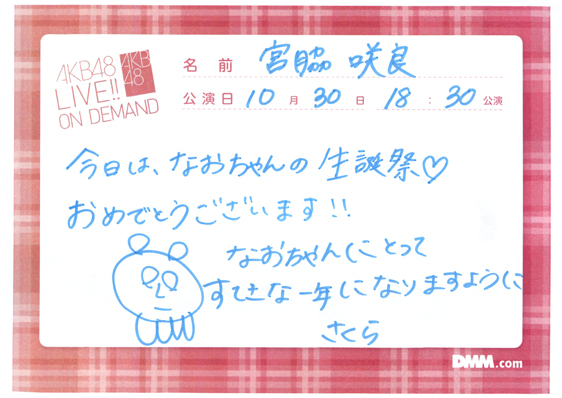 AKB48
LIVE!!
ON DEMAND
AKB
48
名前 宮脇 咲良
公演日 10月30日 18:30公演
今日は、なおちゃんの生誕祭♡
おめでとうございます!!
なおちゃんにとって
すてきな一年になりますように
さくら
DMM.com